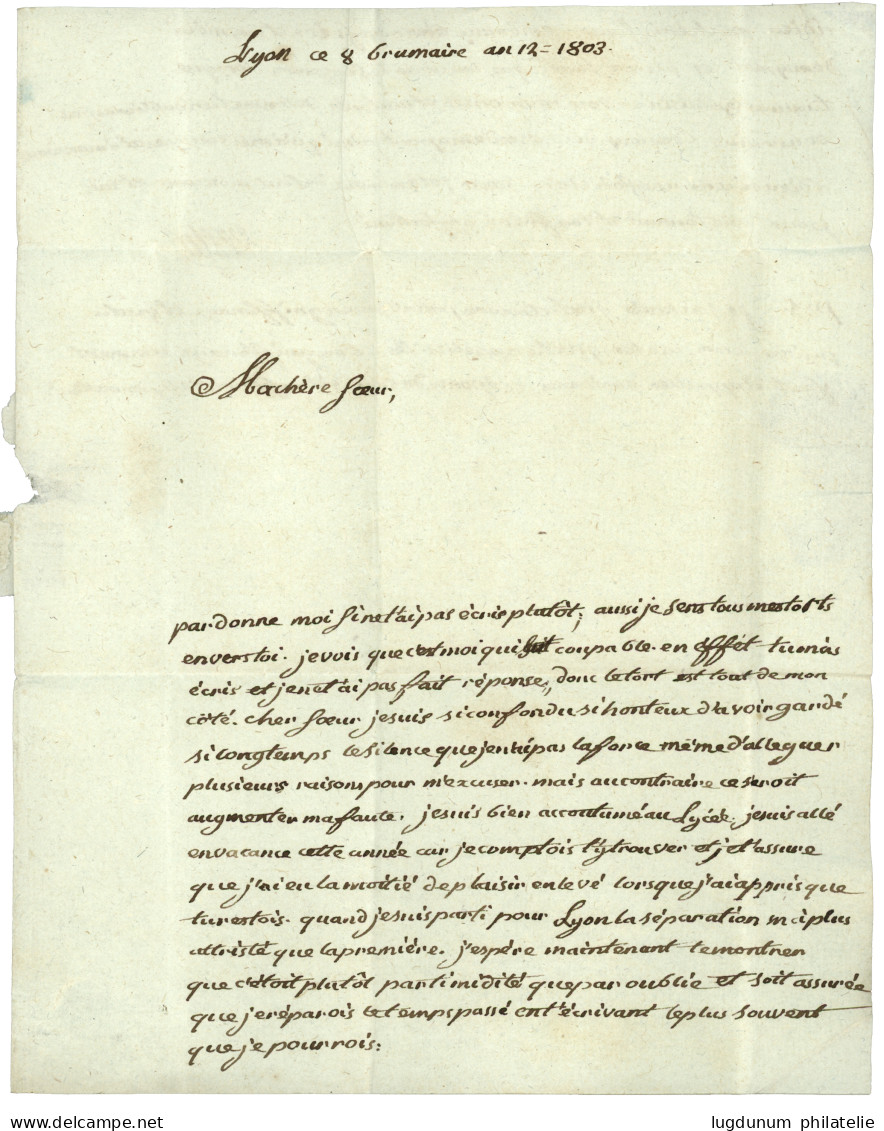 Lyon ce 8 brumaire an 12 = 1803.
Ma chère sœur,
pardonne moi si ne t'ai pas écris plutôt; aussi je sens tous mes torts
envers toi. je vois que c'est moi qui suit coupable. en éffét tu m'às
écris et je ne t'ai pas fait réponse, donc le tort est tout de mon
côté. cher sœur je suis si confondu si honteux d'avoir gardé
si longtemps le silence que je n'ai pas la force même d'alleguer
plusieurs raisons pour m'excuser. mais au contraire ce seroit
augmenter ma faute. je suis bien accoutumé au Lycée. je suis allé
en vacance cette année car je comptois t'y trouver et je t'assure
que j'ai eu la moitié de plaisir enlevé lorsque j'ai appris que
tu restois. quand je suis parti pour Lyon la séparation m'a plus
attristé que la première. j'espére maintenant te montrer
que c'étoit plutôt par timidité que par oublie et soit assurée
que je réparois le temps passé en t'écrivant le plus souvent
que je pourrois:
lugdunum philatelie